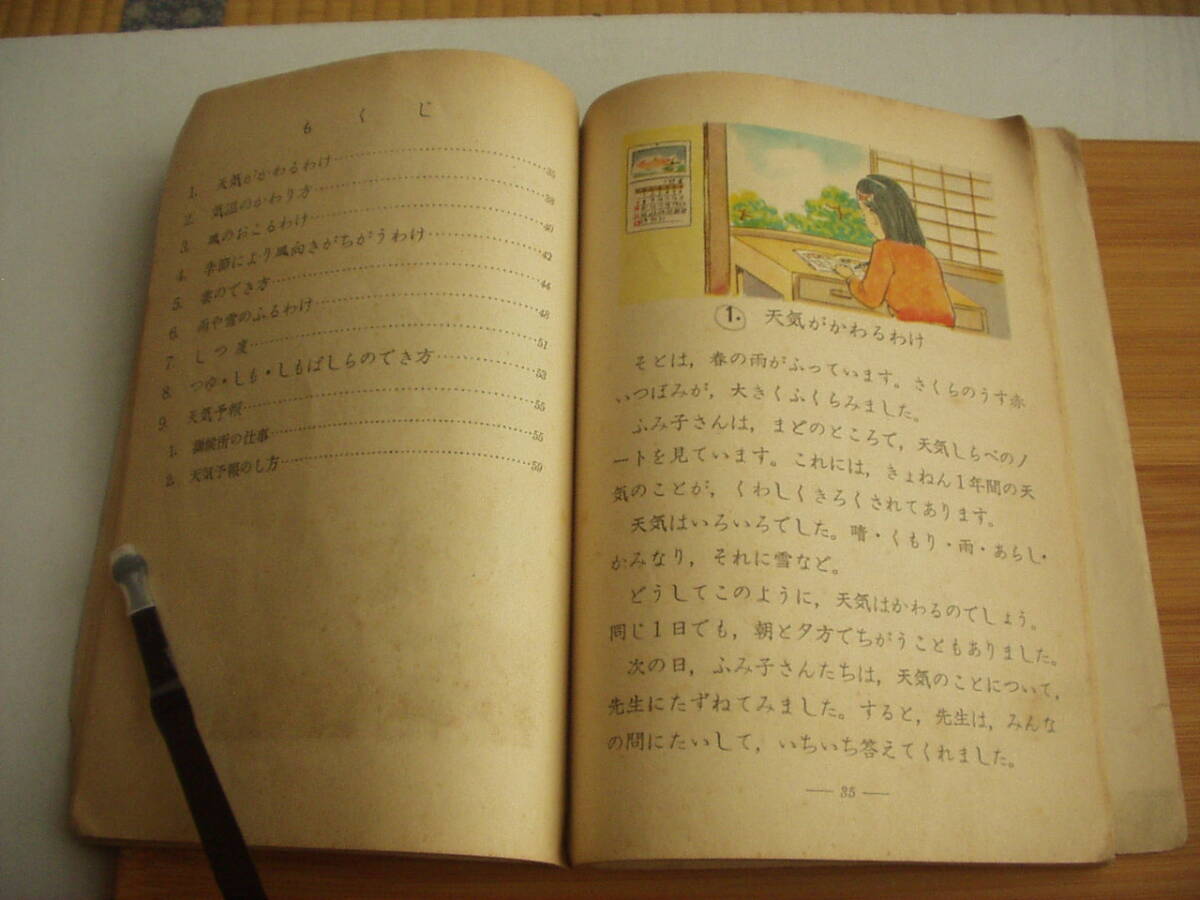 もくじ
1. 天気がかわるわけ……35
2. 気温のかわり方……38
3. 風のおこるわけ……40
4. 季節により風向きがちがうわけ……42
5. 雲のでき方……44
6. 雨や雪のふるわけ……48
7. しつ度……51
8. つゆ・しも・しもばしらのでき方……53
9. 天気予報……55
1. 測候所の仕事……55
2. 天気予報のし方……59
1. 天気がかわるわけ
そとは，春の雨がふっています。さくらのうす赤
いつぼみが，大きくふくらみました。
ふみ子さんは，まどのところで，天気しらべのノ
ートを見ています。これには，きょねん1年間の天
気のことが，くわしくきろくされてあります。
天気はいろいろでした。晴・くもり・雨・あらし・
かみなり，それに雪など。
どうしてこのように，天気はかわるのでしょう。
同じ1日でも，朝と夕方でちがうこともありました。
次の日，ふみ子さんたちは，天気のことについて，
先生にたずねてみました。すると，先生は，みんな
の問にたいして，いちいち答えてくれました。
— 35 —